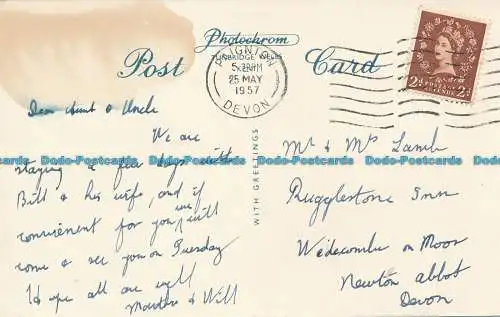 Photochrom
Post Card
TUNBRIDGE WELLS
PAIGNTON
25 MAY
1957
DEVON
2d POSTAGE REVENUE 2d
WITH GREETINGS
Dear Aunt & Uncle
We are
staying a few days with
Bill & his wife, and if
convenient for you, we will
come & see you on Tuesday
Hope all are well
& Will
Mr & Mrs Lamb
Rugglestone Inn
Widecombe on Moor
Newton Abbot
Devon
Dodo-Postcards Dodo-Postcards Dodo-Postcards Dodo-Postcards Dodo-Postcards